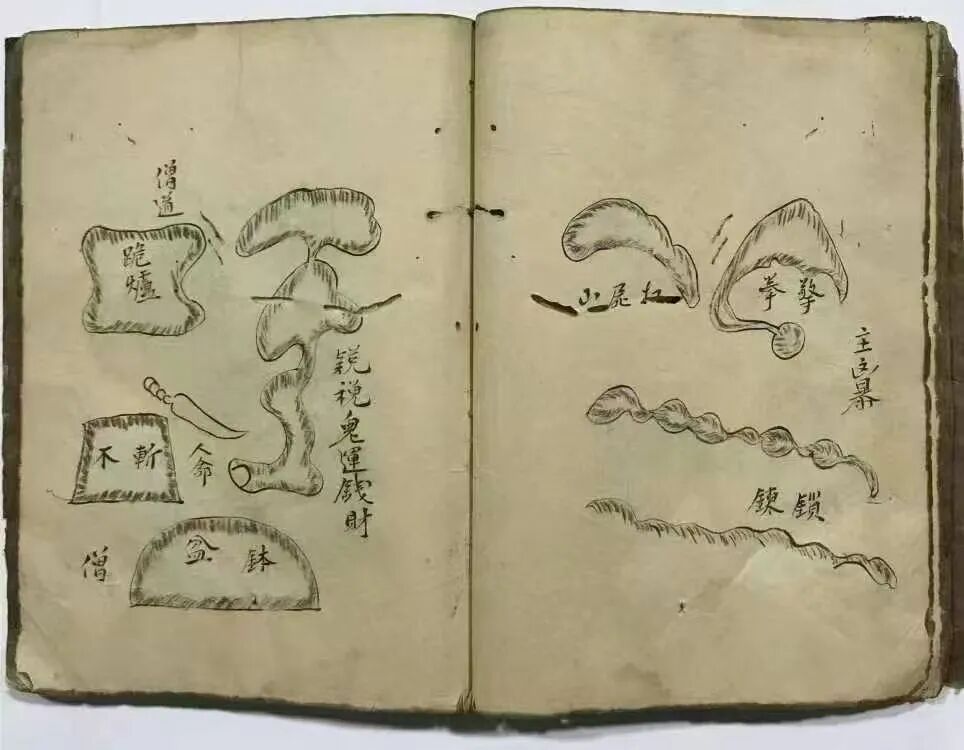 擎拳
主凶暴
扛屍山
鎖鍊
鬼運錢財
僧道
跪爐
人命
斬不
鉢盆
僧